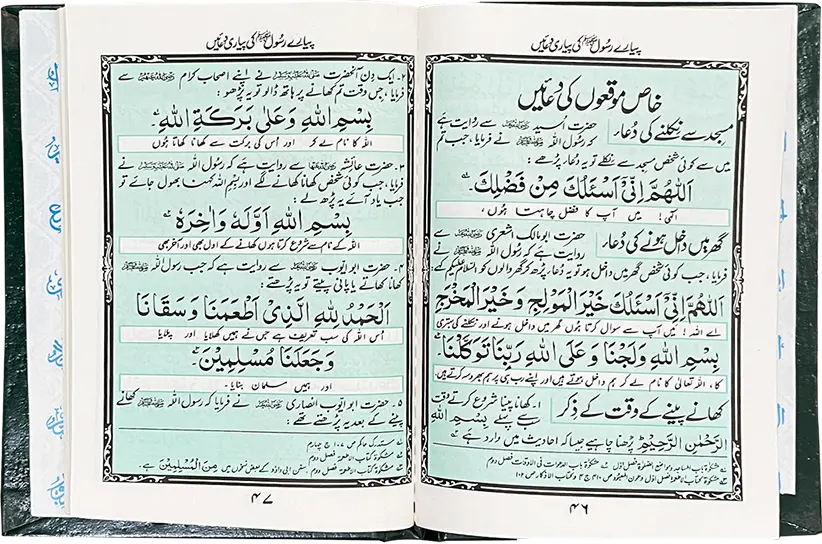 پیارے رسُول ﷺ کی پیاری دُعائیں
خاص موقعوں کی دُعائیں
مسجد سے نکلنے کی دُعاء
حضرت اُسید رضی اللہ عنہ سے روایت ہے
کہ رسول اللہ ﷺ نے فرمایا، جب تم
میں سے کوئی شخص مسجد سے نکلے تو یہ دُعاء پڑھے :
اَللّٰهُمَّ اِنِّیْٓ اَسْئَلُكَ مِنْ فَضْلِكَ۔
الٰہی! میں آپ کا فضل چاہتا ہُوں،
گھر میں داخل ہونے کی دُعاء
حضرت ابو مالک اشعری رضی اللہ عنہ سے
روایت ہے کہ رسُول اللہ ﷺ نے
فرمایا، جب کوئی شخص گھر میں داخل ہو تو یہ دُعاء پڑھ کر گھر والوں کو السلام علیکم کہے:
اَللّٰهُمَّ اِنِّیْٓ اَسْئَلُكَ خَیْرَ الْمَوْلِجِ وَخَیْرَ الْمَخْرَجِ
اے اللہ! میں آپ سے سوال کرتا ہُوں گھر میں داخل ہونے اور نکلنے کی بہتری
بِسْمِ اللهِ وَلَجْنَا وَعَلَی اللهِ رَبِّنَا تَوَكَّلْنَا۔
کا، اللہ تعالیٰ کا نام لے کر ہم داخل ہوتے ہیں اور اپنے رب ہی پر ہم بھروسہ کرتے ہیں۔
کھانے پینے کے وقت کے ذکر
۱۔ کھانا پینا شروع کرتے وقت
سب سے پہلے بِسْمِ اللهِ
الرَّحْمٰنِ الرَّحِیْمِ پڑھنا چاہیے جیسا کہ احادیث میں وارد ہے
۴۶
پیارے رسُول ﷺ کی پیاری دُعائیں
۲۔ ایک دِن آنحضرت ﷺ نے اپنے اصحاب کرام رضی اللہ عنہم سے
فرمایا، جس وقت تم کھانے پر ہاتھ ڈالو تو یہ پڑھو :
بِسْمِ اللهِ وَعَلٰی بَرَكَةِ اللهِ۔
اللہ کا نام لے کر اور اُس کی برکت سے کھانا کھاتا ہُوں
۳۔ حضرت عائشہ رضی اللہ عنہا سے روایت ہے کہ رسول اللہ ﷺ نے
فرمایا، جب کوئی شخص کھانا کھانے لگے اور بِسْمِ اللہ کہنا بھول جائے تو
جب یاد آئے یہ پڑھ لے :
بِسْمِ اللهِ اَوَّلَهٗ وَاٰخِرَهٗ
اللہ کے نام سے شروع کرتا ہوں کھانے کے اول بھی اور آخر بھی
۴۔ حضرت ابو ایوب رضی اللہ عنہ سے روایت ہے کہ جب رسول اللہ ﷺ
کھانا کھاتے یا پانی پیتے تو یہ پڑھتے :
اَلْحَمْدُ لِلّٰهِ الَّذِیْٓ اَطْعَمَنَا وَسَقَانَا
اُس اللہ کی سب تعریف ہے جس نے ہمیں کھلایا اور پلایا
وَجَعَلَنَا مُسْلِمِیْنَ۔
اور ہمیں مسلمان بنایا۔
۵۔ حضرت ابو ایوب انصاری رضی اللہ عنہ نے فرمایا کہ رسُول اللہ ﷺ کھانے
پینے کے بعد یہ پڑھتے تھے :
۴۷